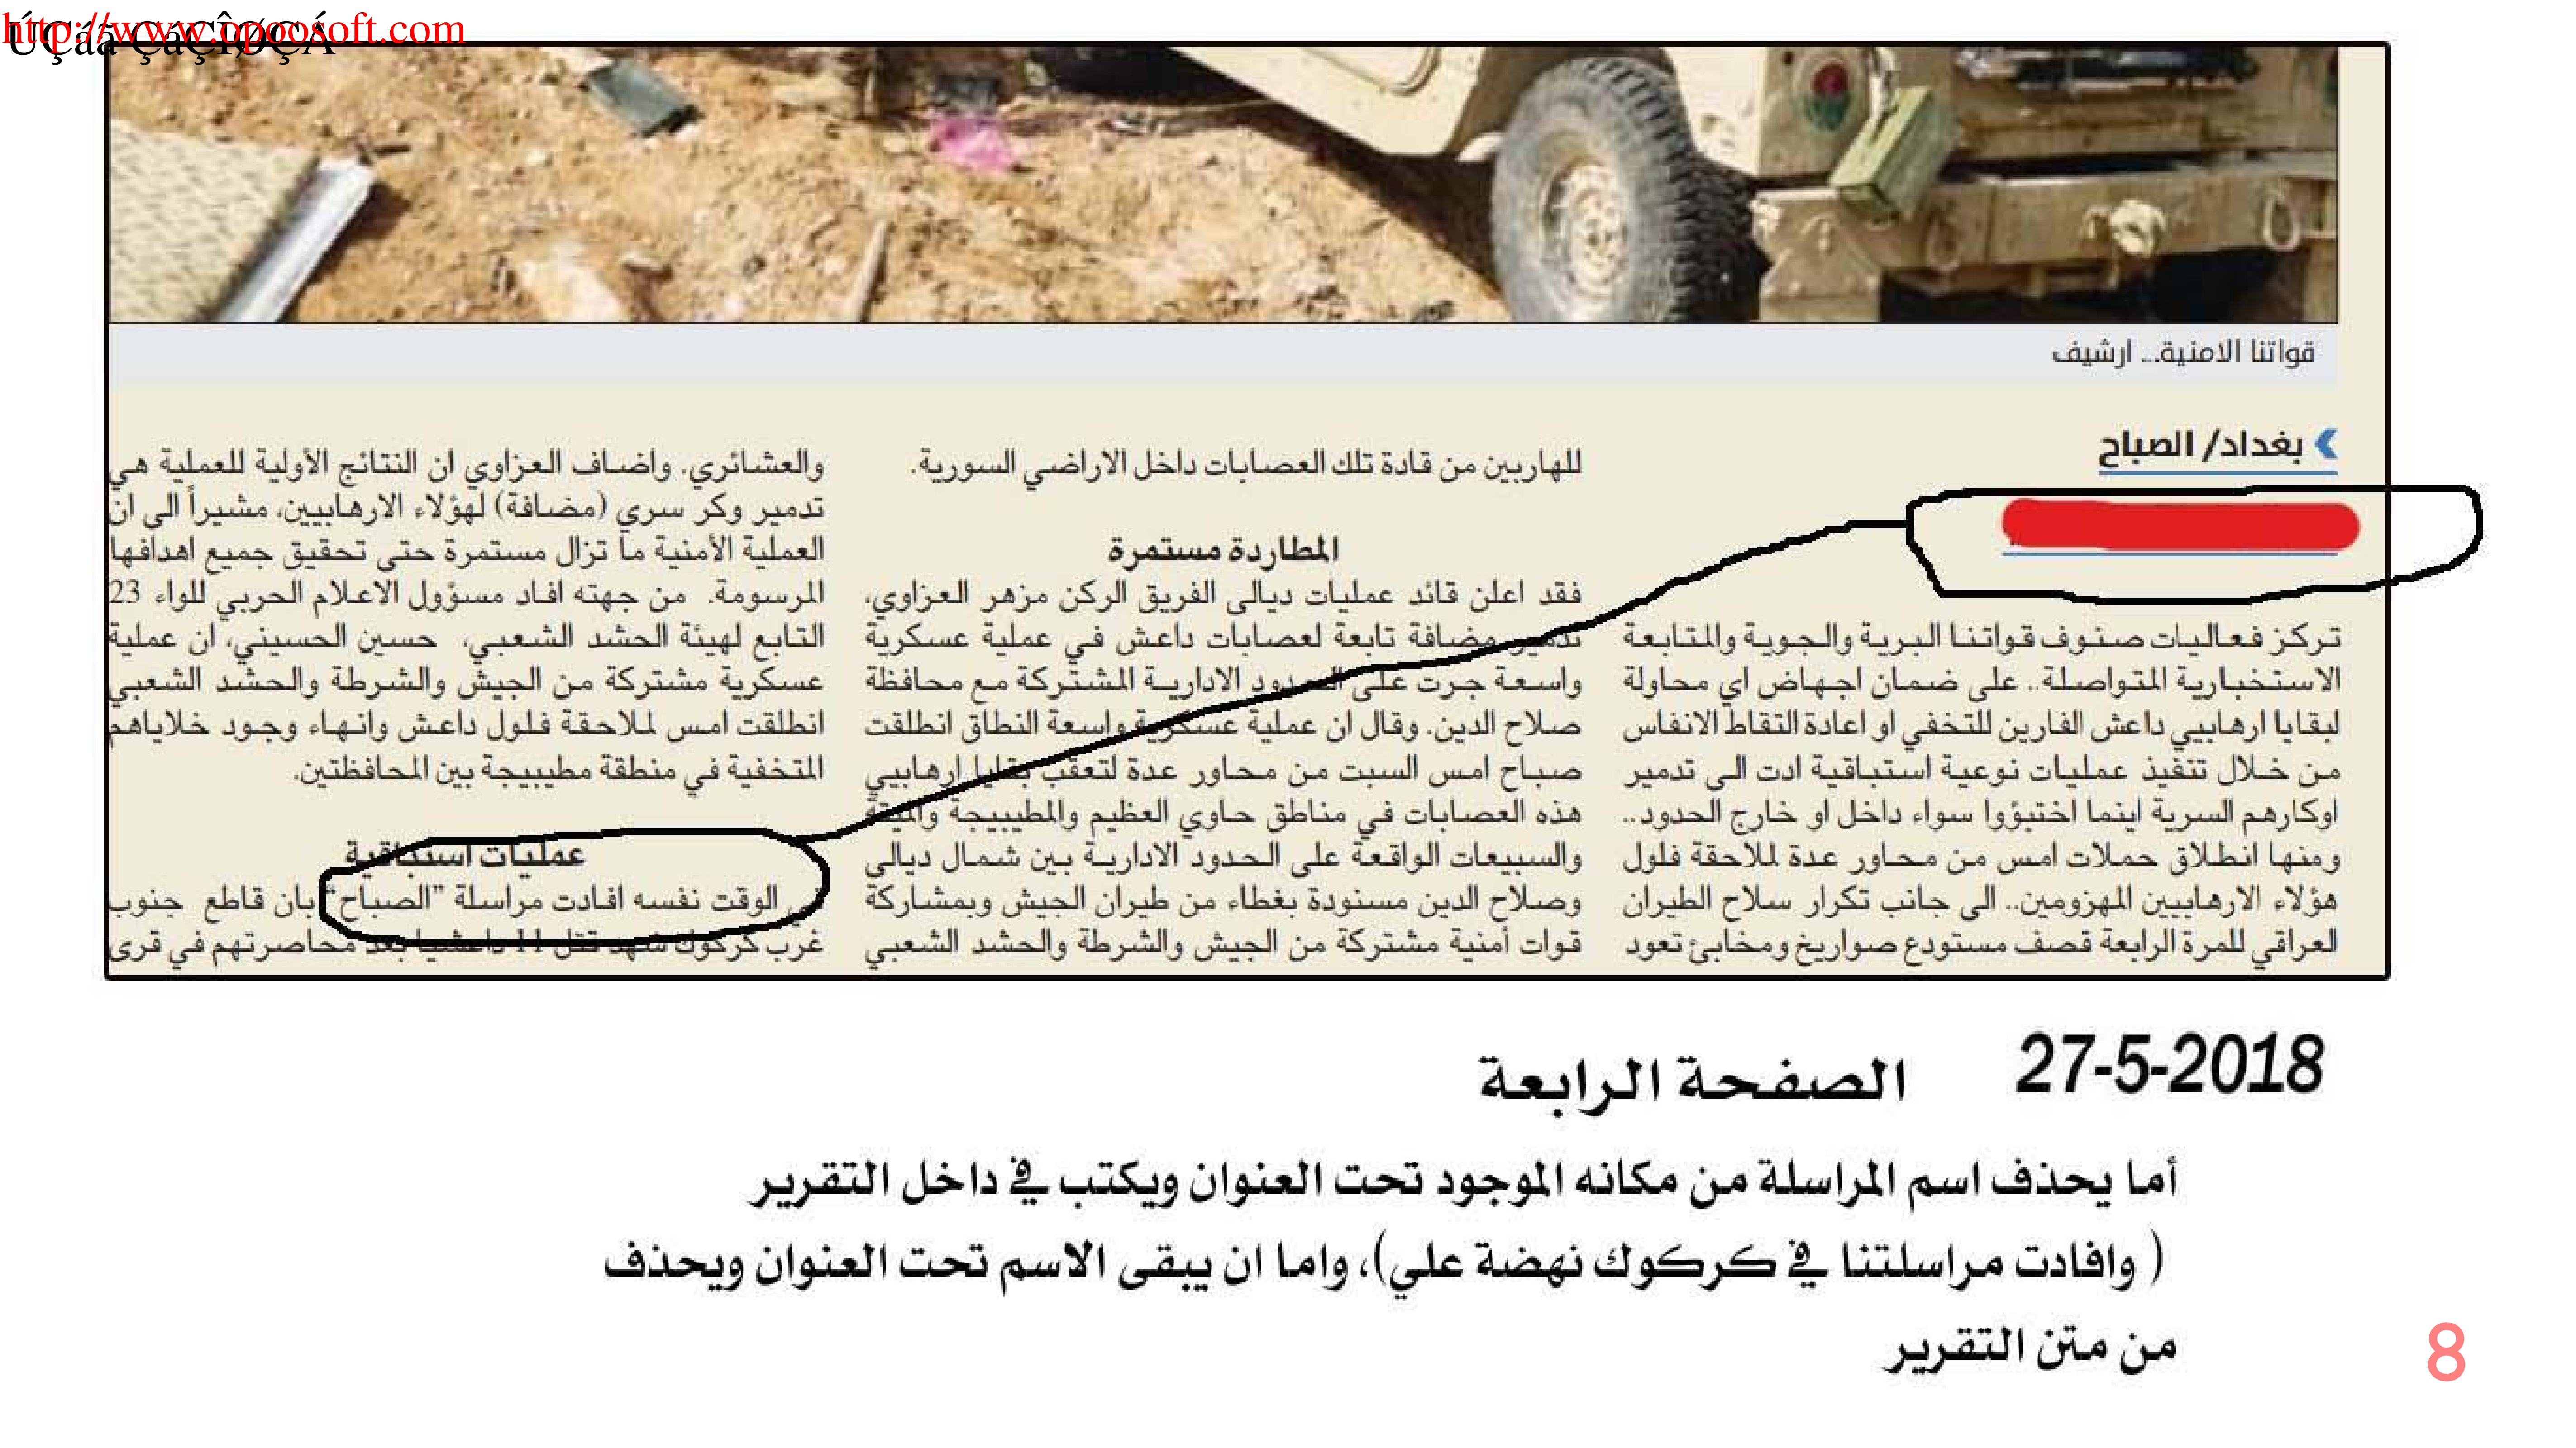 http://www.opcosoft.com
ÚÇáã ÇáÇÎØÇÁ
قواتنا الامنية... ارشيف
بغداد/ الصباح
تركز فعاليات صنوف قواتنا البرية والجوية والمتابعة
الاستخبارية المتواصلة.. على ضمان اجهاض اي محاولة
لبقايا ارهابيي داعش الفارين للتخفي او اعادة التقاط الانفاس
من خلال تنفيذ عمليات نوعية استباقية ادت الى تدمير
اوكارهم السرية اينما اختبؤوا سواء داخل او خارج الحدود..
ومنها انطلاق حملات امس من محاور عدة لملاحقة فلول
هؤلاء الارهابيين المهزومين.. الى جانب تكرار سلاح الطيران
العراقي للمرة الرابعة قصف مستودع صواريخ ومخابئ تعود
للهاربين من قادة تلك العصابات داخل الاراضي السورية.
المطاردة مستمرة
فقد اعلن قائد عمليات ديالى الفريق الركن مزهر العزاوي،
تدمير مضافة تابعة لعصابات داعش في عملية عسكرية
واسعة جرت على الحدود الادارية المشتركة مع محافظة
صلاح الدين. وقال ان عملية عسكرية واسعة النطاق انطلقت
صباح امس السبت من محاور عدة لتعقب بقايا ارهابيي
هذه العصابات في مناطق حاوي العظيم والمطيبيجة والميتة
والسبيعات الواقعة على الحدود الادارية بين شمال ديالى
وصلاح الدين مسنودة بغطاء من طيران الجيش وبمشاركة
قوات أمنية مشتركة من الجيش والشرطة والحشد الشعبي
والعشائري. واضاف العزاوي ان النتائج الأولية للعملية هي
تدمير وكر سري (مضافة) لهؤلاء الارهابيين، مشيراً الى ان
العملية الأمنية ما تزال مستمرة حتى تحقيق جميع اهدافها
المرسومة. من جهته افاد مسؤول الاعلام الحربي للواء 23
التابع لهيئة الحشد الشعبي، حسين الحسيني، ان عملية
عسكرية مشتركة من الجيش والشرطة والحشد الشعبي
انطلقت امس لملاحقة فلول داعش وانهاء وجود خلاياهم
المتخفية في منطقة مطيبيجة بين المحافظتين.
عمليات استباقية
في الوقت نفسه افادت مراسلة "الصباح" بان قاطع جنوب
غرب كركوك شهد قتل 11 داعشيا بعد محاصرتهم في قرى
27-5-2018 الصفحة الرابعة
أما يحذف اسم المراسلة من مكانه الموجود تحت العنوان ويكتب في داخل التقرير
( وافادت مراسلتنا في كركوك نهضة علي)، واما ان يبقى الاسم تحت العنوان ويحذف
من متن التقرير
8